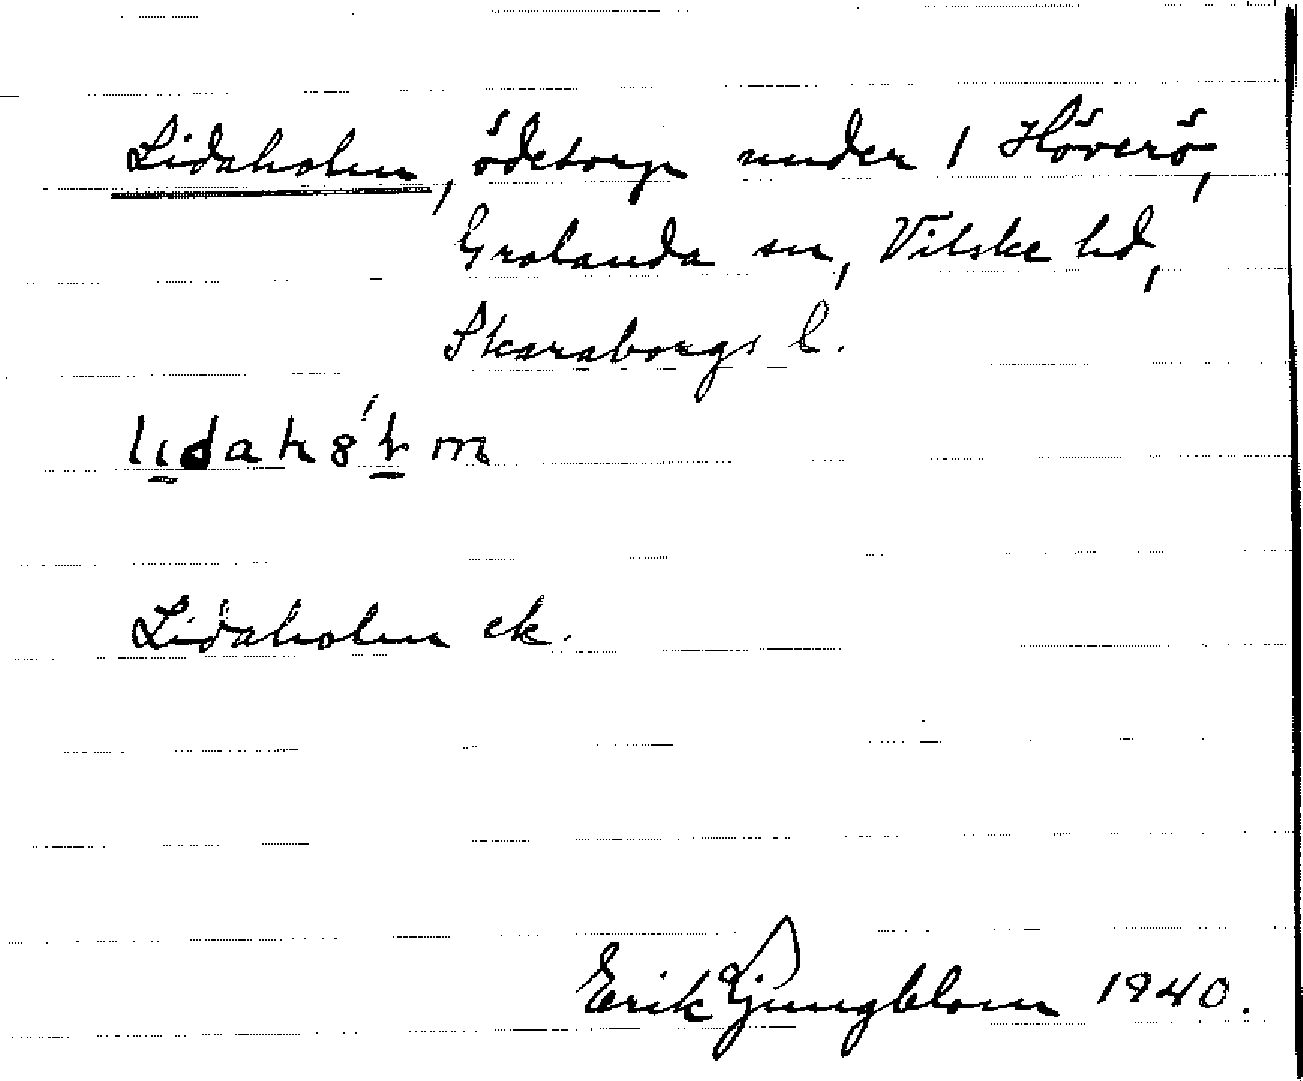 Lidaholm, ödetorp under 1 Höverö,
Grolanda sn, Vilske hd,
Skaraborgs l.
Lidaholm ek.
Erik Ljungblom 1940.